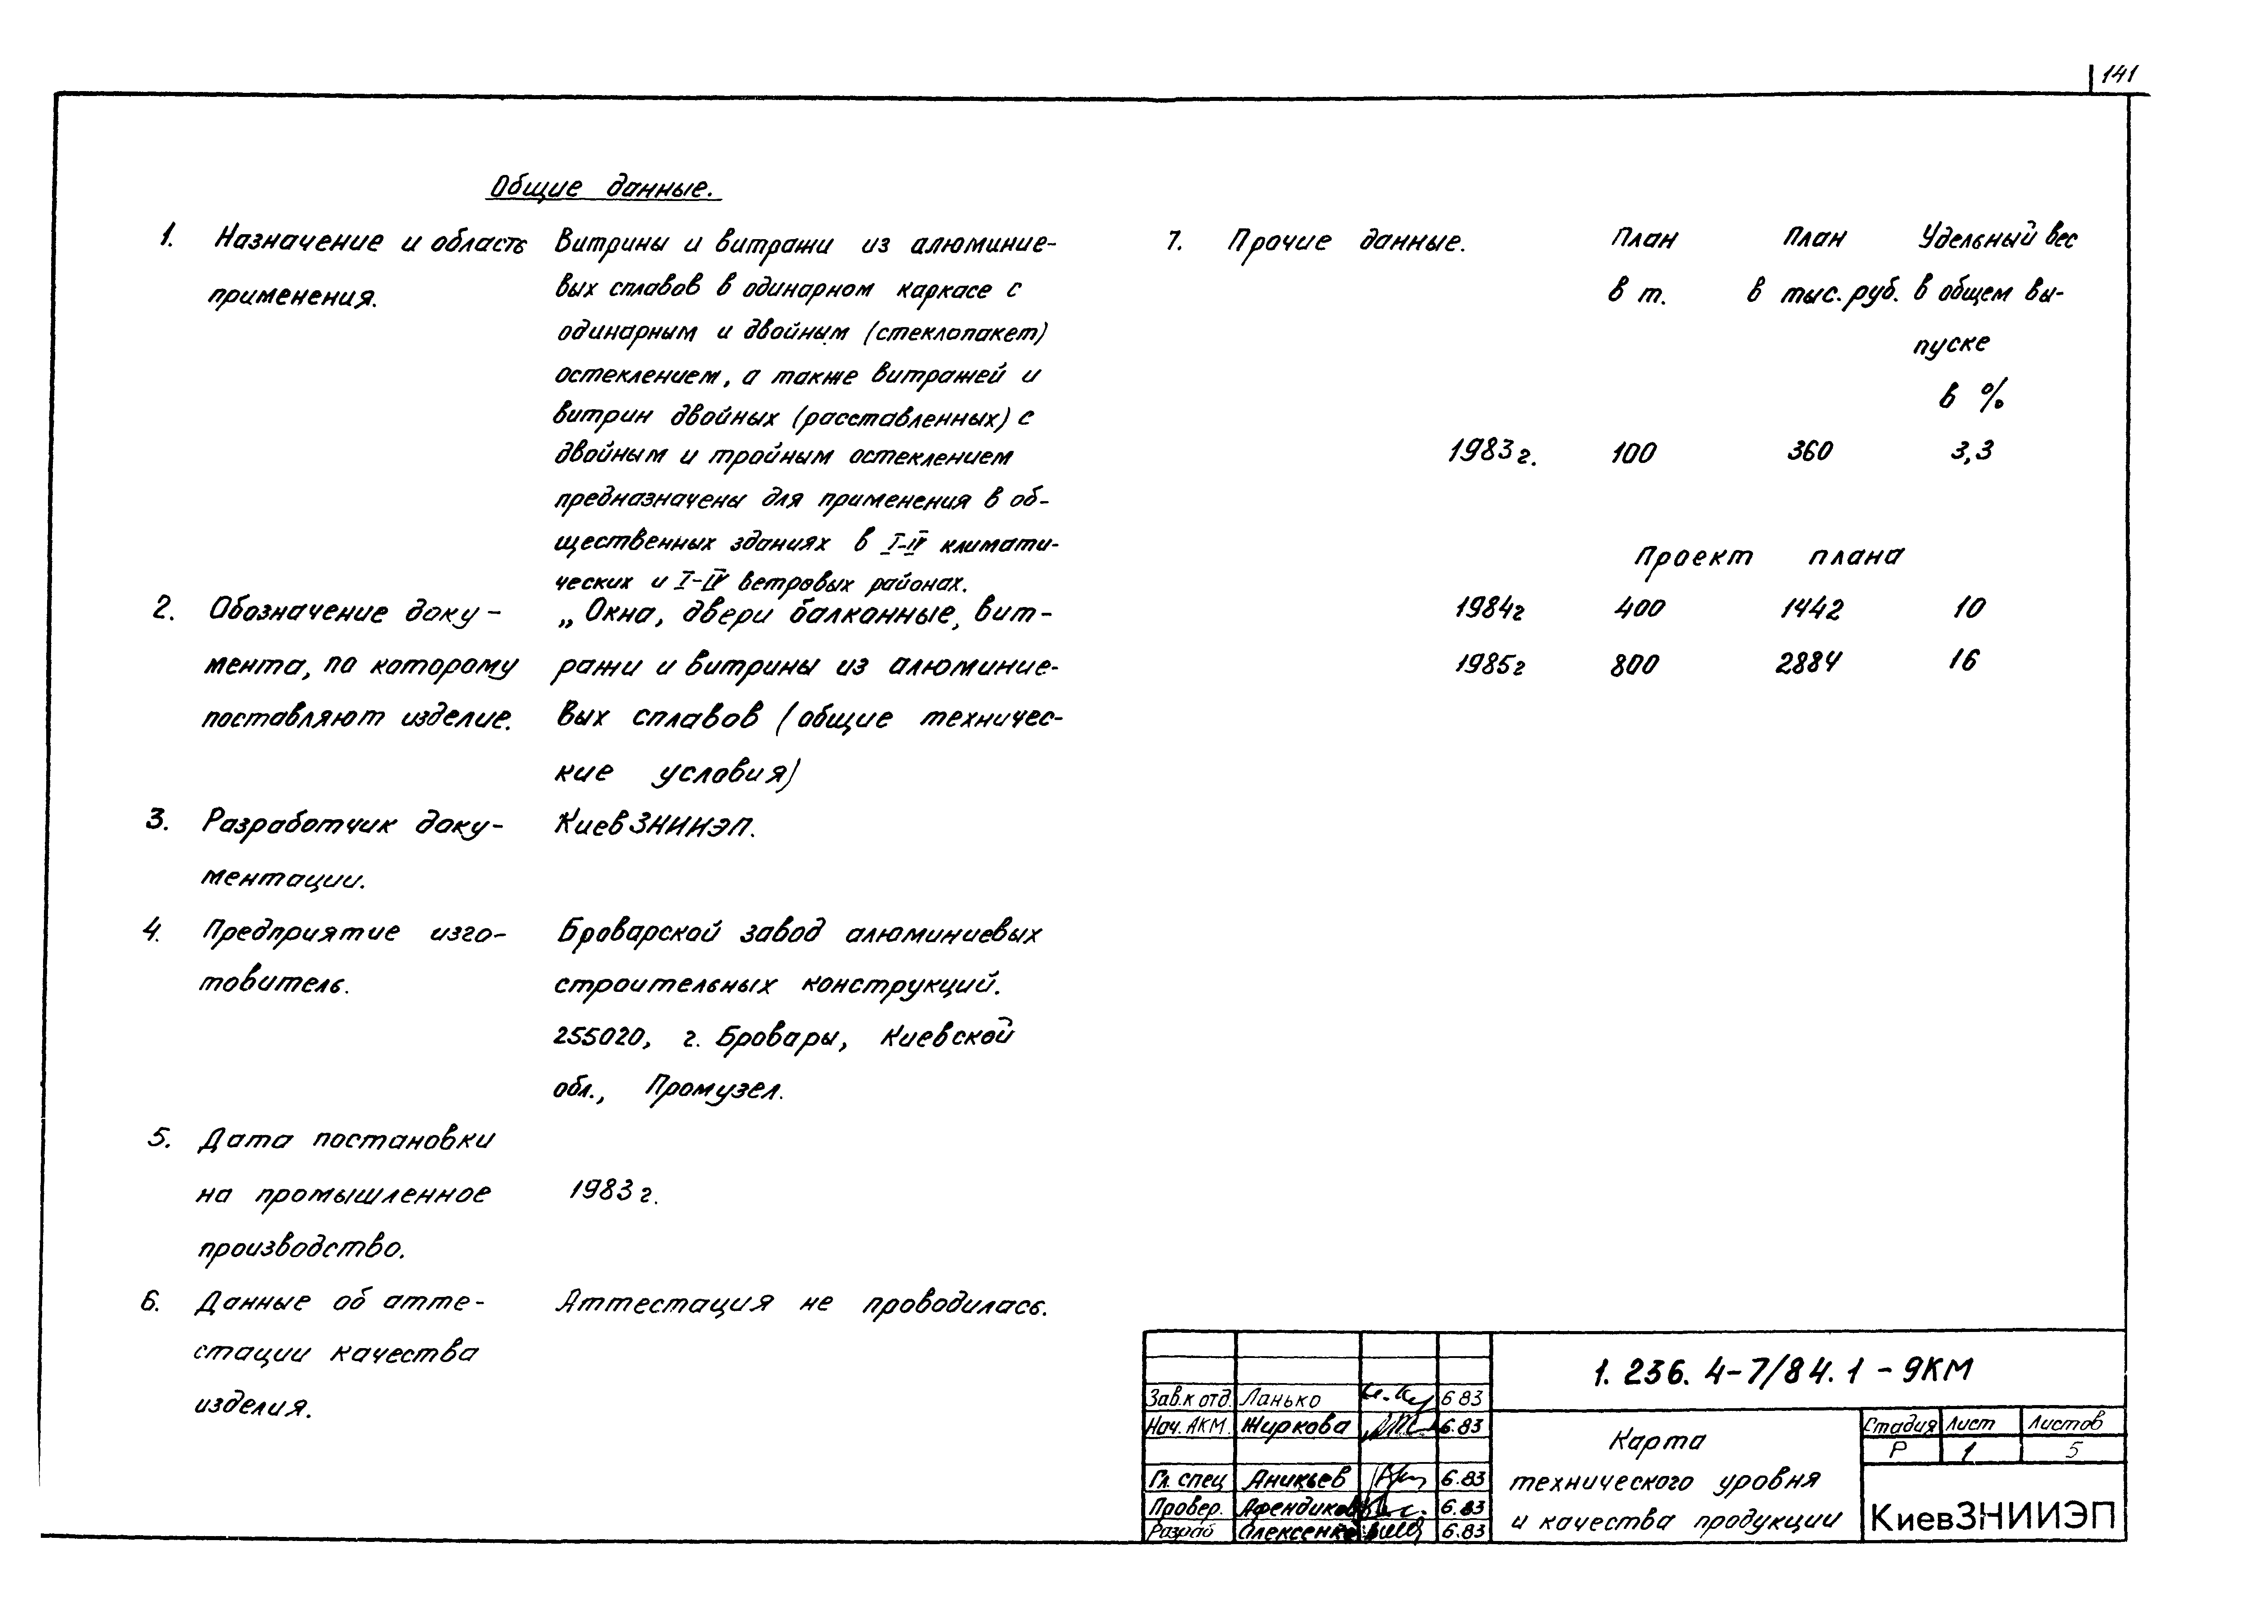 141
Общие данные.
1. Назначение и область
применения.
Витрины и витражи из алюминие-
вых сплавов в одинарном каркасе с
одинарным и двойным (стеклопакет)
остеклением, а также витражей и
витрин двойных (расставленных) с
двойным и тройным остеклением
предназначены для применения в об-
щественных зданиях в I-IV климати-
ческих и I-IV ветровых районах.
2. Обозначение доку-
мента, по которому
поставляют изделие.
„Окна, двери балконные, вит-
ражи и витрины из алюминие-
вых сплавов (общие техничес-
кие условия)
3. Разработчик доку-
ментации.
КиевЗНИИЭП.
4. Предприятие изго-
товитель.
Броварской завод алюминиевых
строительных конструкций.
255020, г. Бровары, Киевской
обл., Промузел.
5. Дата постановки
на промышленное
производство.
1983 г.
6. Данные об атте-
стации качества
изделия.
Аттестация не проводилась.
7. Прочие данные.
План План Удельный вес
в т. в тыс. руб. в общем вы-
пуске
в %
1983 г. 100 360 3,3
Проект плана
1984г 400 1442 10
1985г 800 2884 16
Зав.к отд. Ланько 6 83
Нач. АКМ. Жиркова 6.83
Гл. спец Аникьев 6.83
Провер. Афендиков 6.83
Разраб Алексенко 6.83
1. 236. 4-7/84. 1 - 9КМ
Карта
технического уровня
и качества продукции
Стадия Лист Листов
Р 1 5
КиевЗНИИЭП